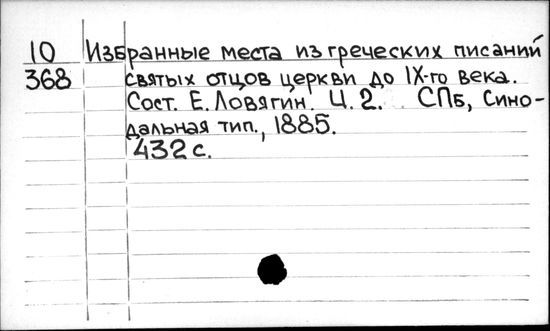 10 Избранные места из греческих писаний
368 святых отцов церкви до IX-го века.
Сост. Е. Ловягин. Ч. 2. СПб, Сино-
дальная тип., 1885.
432 с.